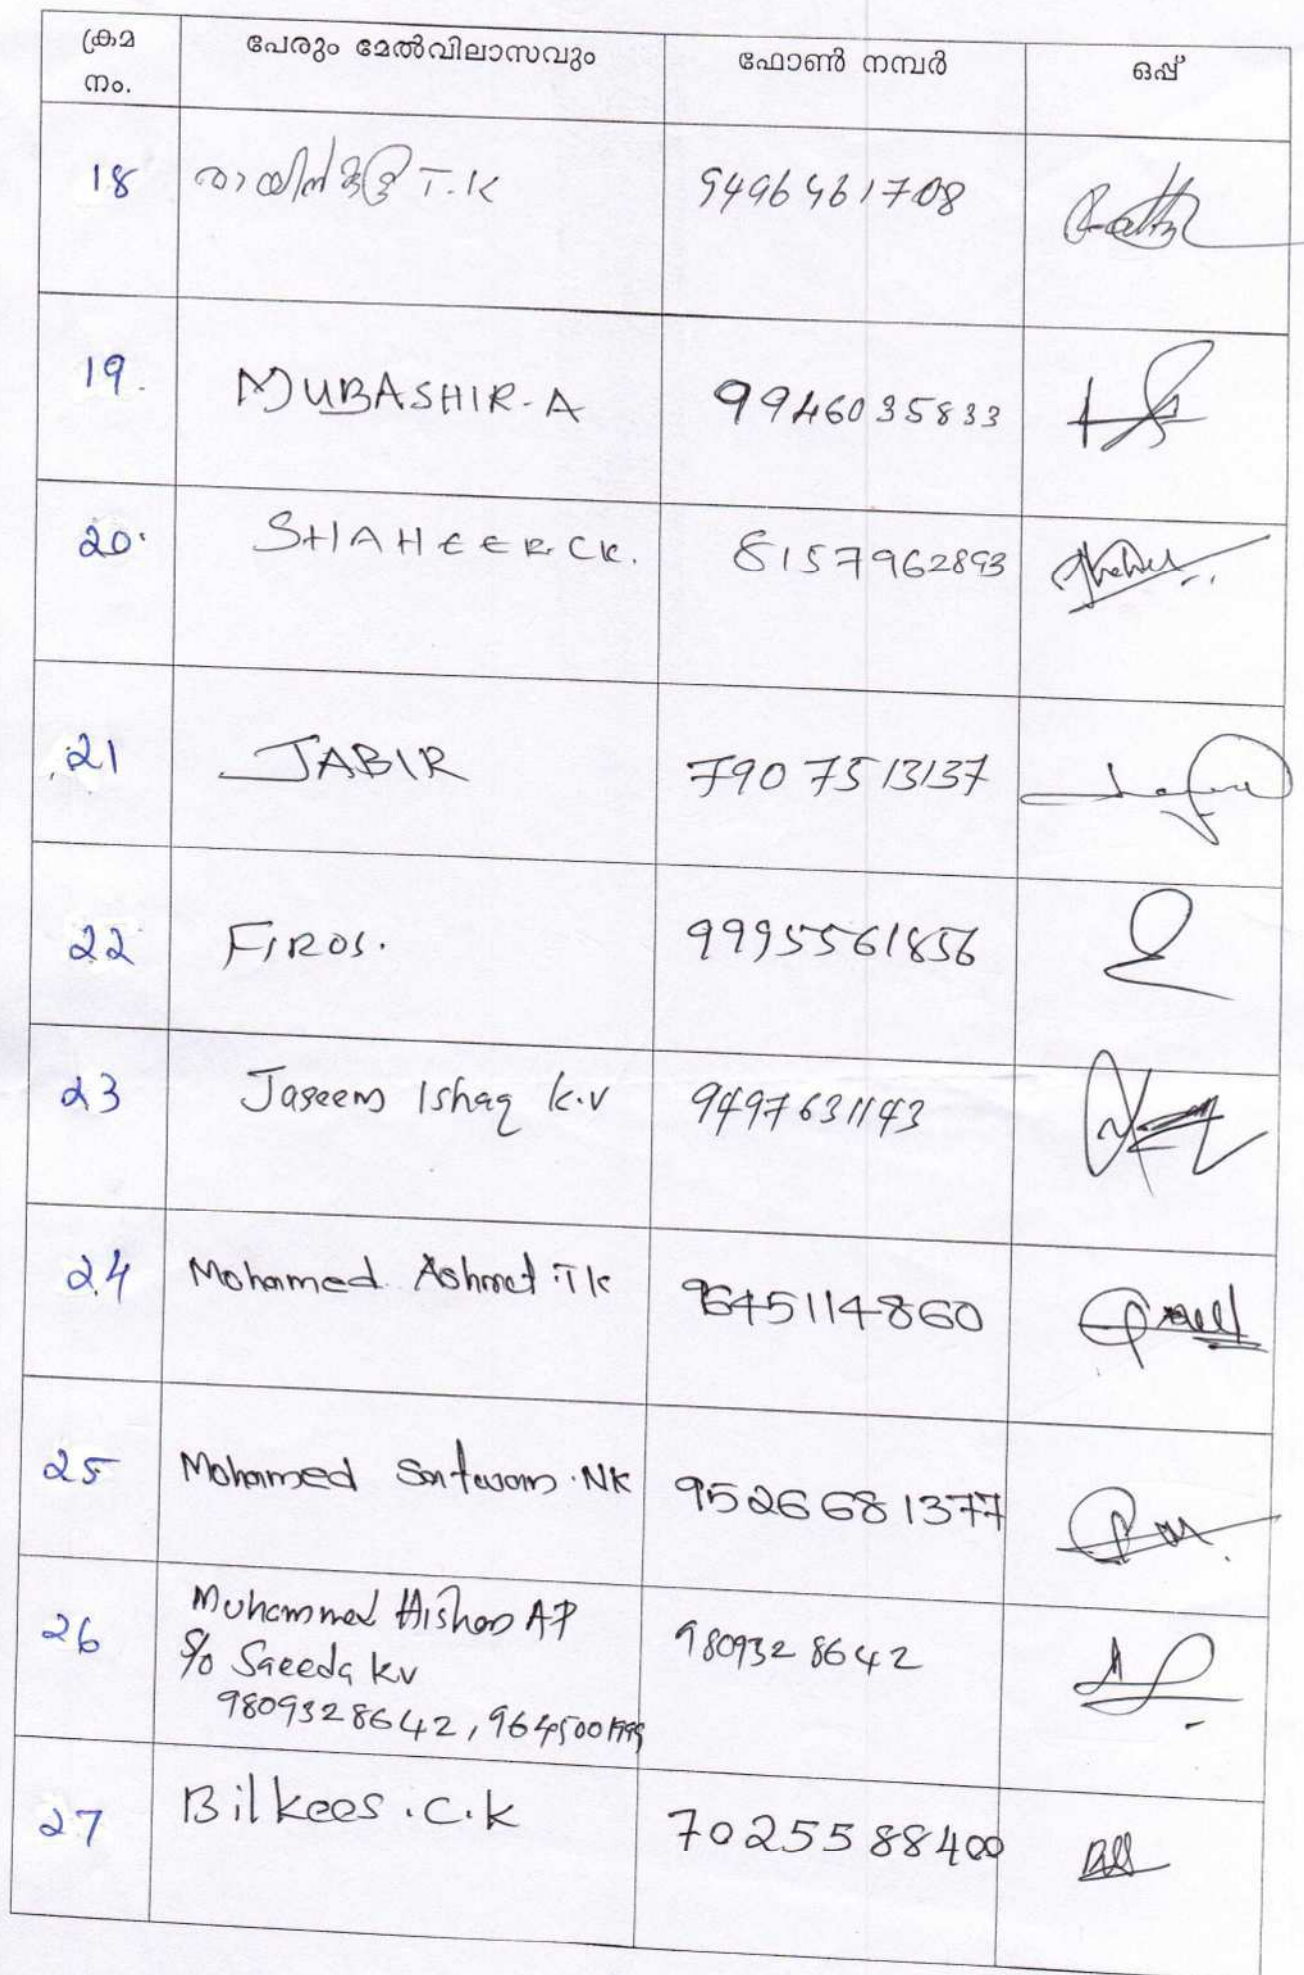 ക്രമ നം. പേരും മേൽവിലാസവും ഫോൺ നമ്പർ ഒപ്പ്
18 T.K 9496461708
19. MUBASHIR-A 9946035833
20. SHAHEER.CK. 8157962893
21 JABIR 7907513137
22 FIROS. 9995561856
23 Jaseem Ishaq K.V 9497631143
24 Mohamed T K 9645114860
25 Mohamed NK 9526681377
26 Muhammed Hisham AP 9809328642
S/o Saeeda kv
9809328642,
27 Bilkees.C.K 7025588400